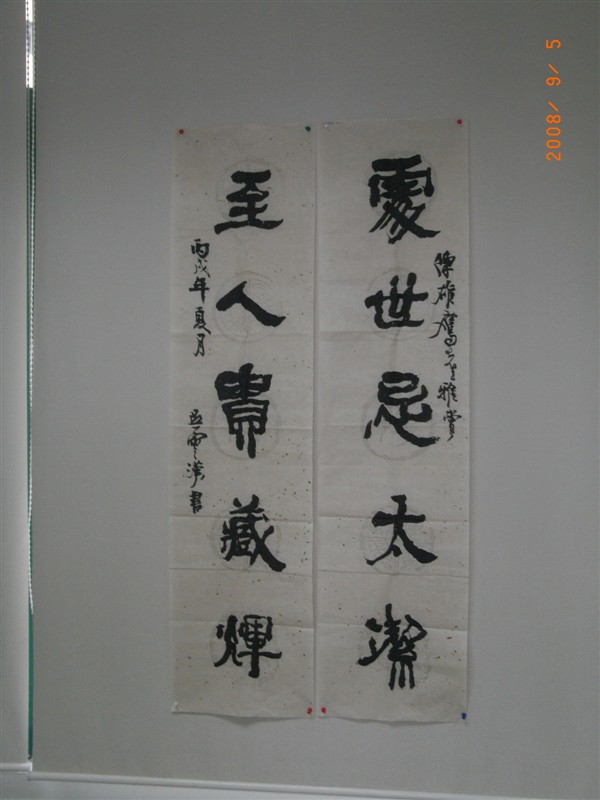 陳雄鷹先生雅賞
處世忌太潔
至人貴藏輝
丙戌年夏月
書
2008/ 9/ 5